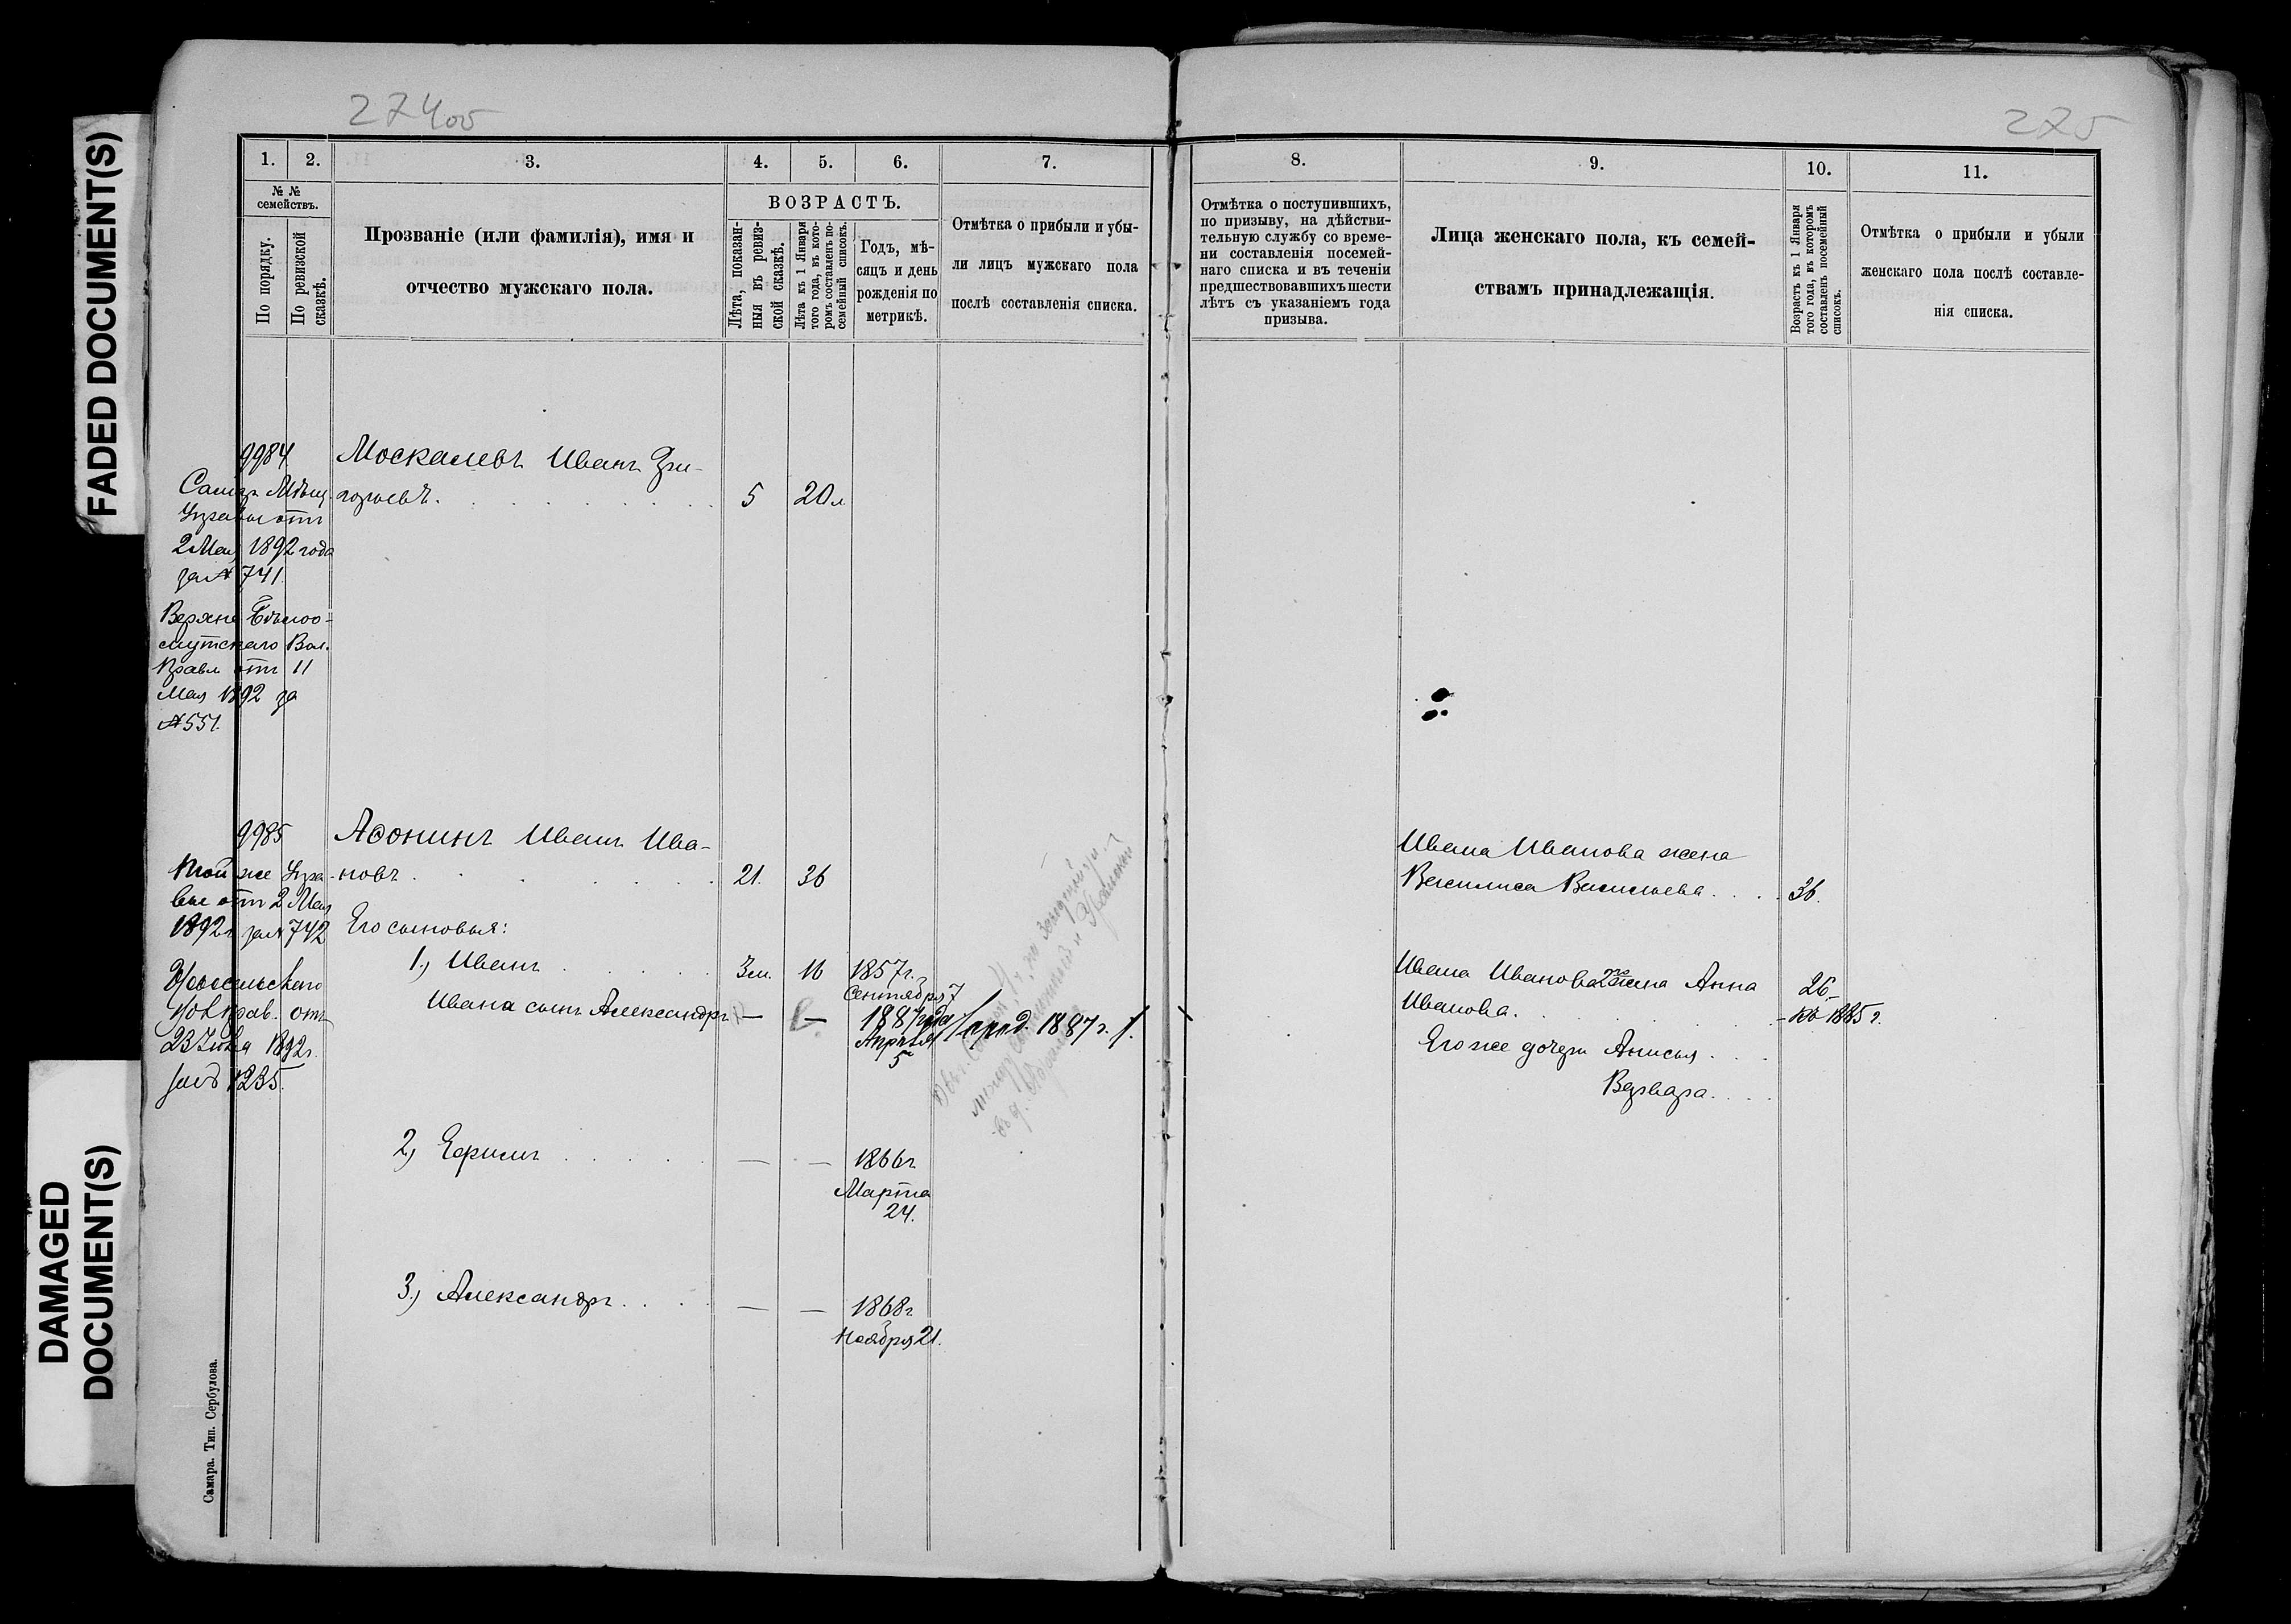 FADED DOCUMENT(S)
DAMAGED
DOCUMENT(S)
274об
1.
2.
3.
4.
5.
6.
7.
№ №
семействъ.
По порядку.
По ревизской
сказкѣ.
Прозваніе (или фамилія), имя и
отчество мужскаго пола.
ВОЗРАСТЪ.
Лѣта, показан-
ныя въ ревиз-
ской сказкѣ.
Лѣта къ 1 Января
того года, въ кото-
ромъ составленъ по-
семейный списокъ.
Годъ, мѣ-
сяцъ и день
рожденія по
метрикѣ.
Отмѣтка о прибыли и убы-
ли лицъ мужскаго пола
послѣ составленія списка.
9984
Москалевъ Иванъ Гри-
горьевъ.
5
20 л
Самар. Мѣщ.
Управы отъ
2 Мая 1892 года
за № 741.
Верхне Бѣлоо-
мутскаго Вол.
Правл отъ 11
Мая 1892 за
№ 551.
9985
Афонинъ Иванъ Ива-
новъ
21.
36
Той же Упра-
вы отъ 2 Мая
1892 г за № 742
отъ
23
1892 г.
1235.
Его сыновья:
1.) Иванъ
3 м.
16
1857 г.
Сентября 7
Ивана сынъ Александръ
—
—
1887 года
Апрѣля
5
1887 г.
2) Ефимъ
—
—
1866 г
Марта
24.
3.) Александръ
—
—
1868 г
Ноября 21.
Самара. Тип. Сербулова.
275
8.
9.
10.
11.
Отмѣтка о поступившихъ,
по призыву, на дѣйстви-
тельную службу со време-
ни составленія посемей-
наго списка и въ теченіи
предшествовавшихъ шести
лѣтъ съ указаніемъ года
призыва.
Лица женскаго пола, къ семей-
ствамъ принадлежащія.
Возрастъ къ 1 Января
того года, въ которомъ
составленъ посемейный
списокъ.
Отмѣтка о прибыли и убыли
женскаго пола послѣ составле-
нія списка.
Ивана Иванова жена
Василиса Васильева
36.
Ивана Иванова 2го жена Анна
Иванова.
26
къ 1885 г.
Его же дочери Анисья
Варвара